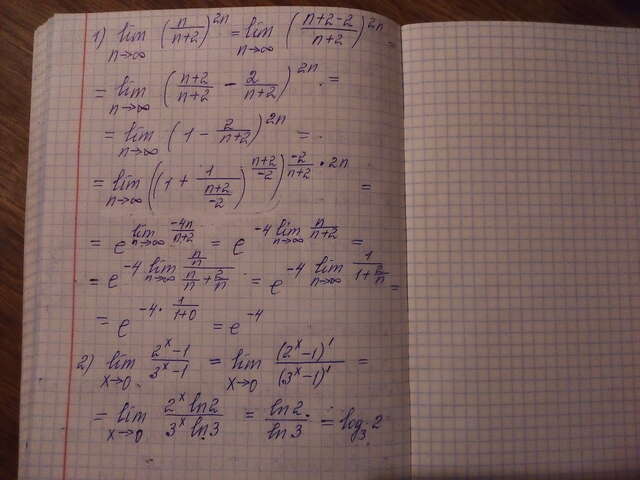 1) lim n→∞ (n/(n+2))^2n = lim n→∞ ((n+2-2)/(n+2))^2n =
= lim n→∞ ((n+2)/(n+2) - 2/(n+2))^2n =
= lim n→∞ (1 - 2/(n+2))^2n =
= lim n→∞ ((1 + 1/((n+2)/-2))^((n+2)/-2))^(-2/(n+2) · 2n) =
= e^(lim n→∞ -4n/(n+2)) = e^(-4 lim n→∞ n/(n+2)) =
= e^(-4 lim n→∞ (n/n)/(n/n + 2/n)) = e^(-4 lim n→∞ 1/(1 + 2/n)) =
= e^(-4 · 1/(1+0)) = e^-4
2) lim x→0 (2^x - 1)/(3^x - 1) = lim x→0 (2^x - 1)'/(3^x - 1)' =
= lim x→0 (2^x ln 2)/(3^x ln 3) = ln 2/ln 3 = log₃ 2